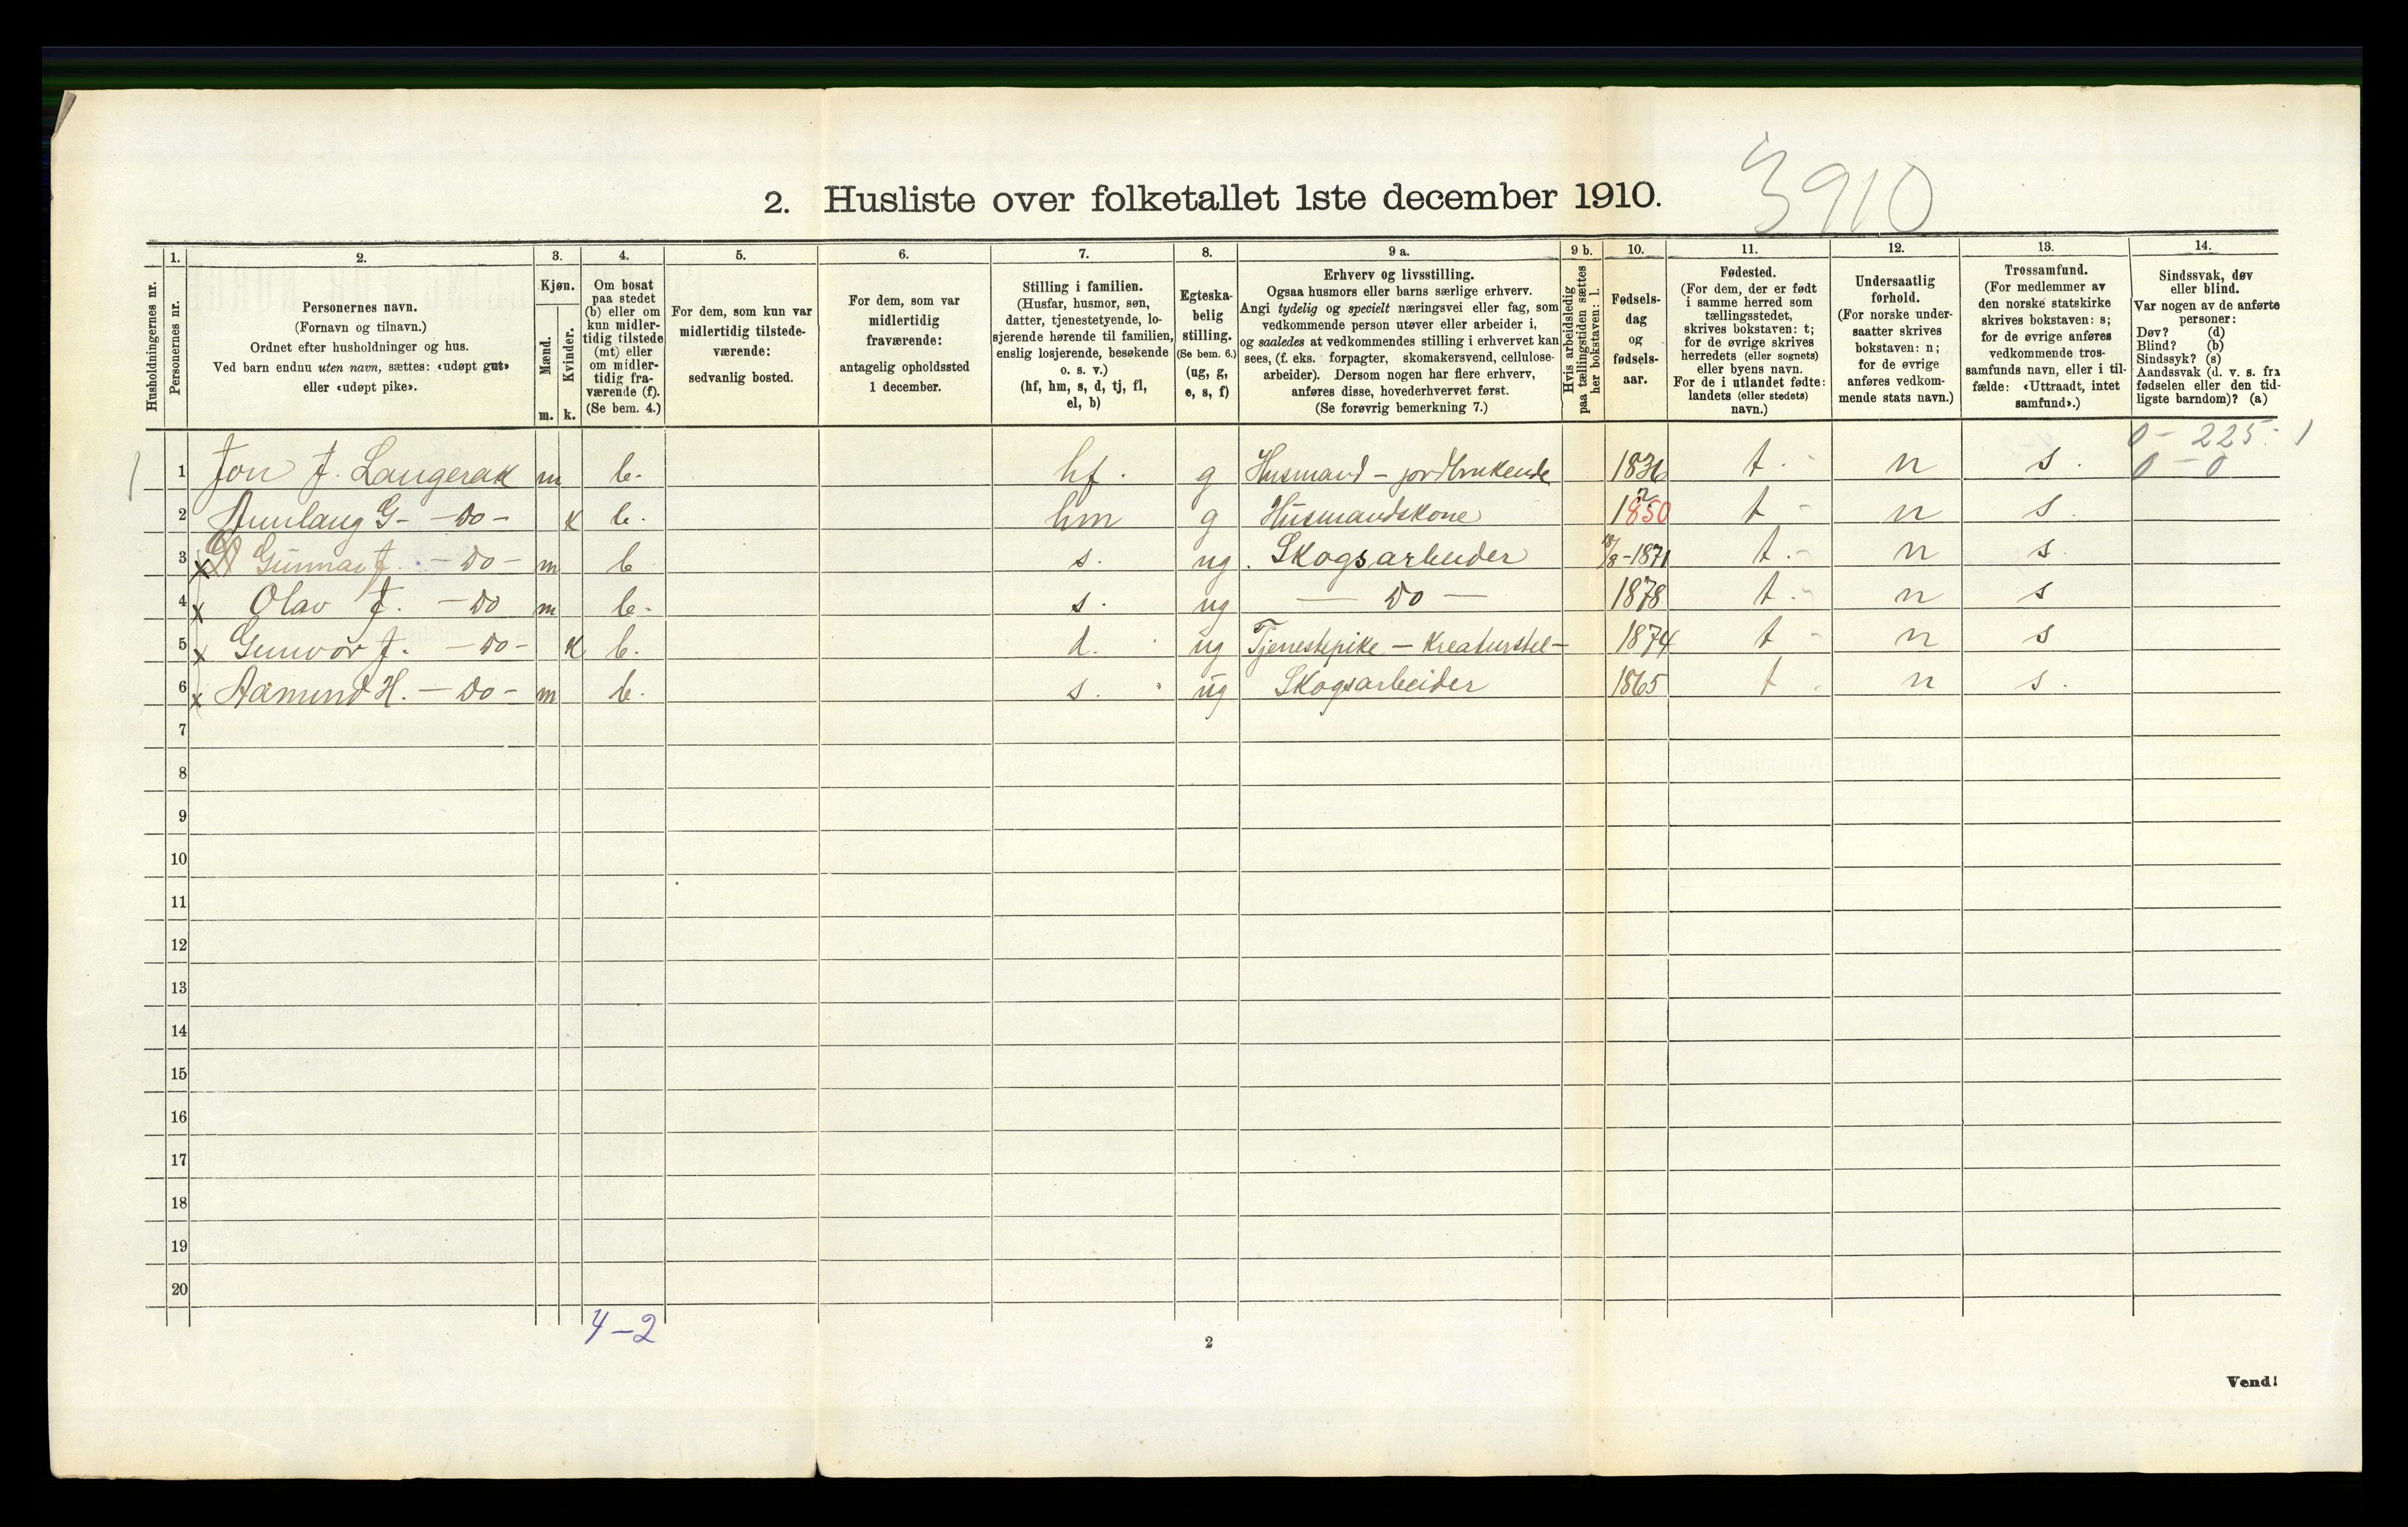 3910
2. Husliste over folketallet 1ste december 1910.
Husholdningernes nr.
1.
Personernes nr.
2.
Personernes navn.
(Fornavn og tilnavn.)
Ordnet efter husholdninger og hus.
Ved barn endnu uten navn, sættes: «udøpt gut»
eller «udøpt pike».
3.
Kjøn.
Mænd.
Kvinder.
m. k.
4.
Om bosat
paa stedet
(b) eller om
kun midler-
tidig tilstede
(mt) eller
om midler-
tidig fra-
værende (f).
(Se bem. 4.)
5.
For dem, som kun var
midlertidig tilstede-
værende:
sedvanlig bosted.
6.
For dem, som var
midlertidig
fraværende:
antagelig opholdssted
1 december.
7.
Stilling i familien.
(Husfar, husmor, søn,
datter, tjenestetyende, lo-
sjerende hørende til familien,
enslig losjerende, besøkende
o. s. v.)
(hf, hm, s, d, tj, fl,
el, b)
8.
Egteska-
belig
stilling.
(Se bem. 6.)
(ug, g,
e, s, f)
9 a.
Erhverv og livsstilling.
Ogsaa husmors eller barns særlige erhverv.
Angi tydelig og specielt næringsvei eller fag, som
vedkommende person utøver eller arbeider i,
og saaledes at vedkommendes stilling i erhvervet kan
sees, (f. eks. forpagter, skomakersvend, cellulose-
arbeider). Dersom nogen har flere erhverv,
anføres disse, hovederhvervet først.
(Se forøvrig bemerkning 7.)
9 b.
Hvis arbeidsledig
paa tællingstiden sættes
her bokstaven: l.
10.
Fødsels-
dag
og
fødsels-
aar.
11.
Fødested.
(For dem, der er født
i samme herred som
tællingsstedet,
skrives bokstaven: t;
for de øvrige skrives
herredets (eller sognets)
eller byens navn.
For de i utlandet fødte:
landets (eller stedets)
navn.)
12.
Undersaatlig
forhold.
(For norske under-
saatter skrives
bokstaven: n;
for de øvrige
anføres vedkom-
mende stats navn.)
13.
Trossamfund.
(For medlemmer av
den norske statskirke
skrives bokstaven: s;
for de øvrige anføres
vedkommende tros-
samfunds navn, eller i til-
fælde: «Uttraadt, intet
samfund».)
14.
Sindssvak, døv
eller blind.
Var nogen av de anførte
personer:
Døv? (d)
Blind? (b)
Sindssyk? (s)
Aandssvak (d. v. s. fra
fødselen eller den tid-
ligste barndom)? (a)
0 - 225 - 1
0 - 0
1 1 Jon J. Langerak m b. hf. g Husmand - jordbrukende 1836 t. - n s.
2 Aunlaug G - - Do - k b. hm g Husmandskone 1850 t - n s.
3 x Gunnar J. - Do - m b s. ug. Skogsarbeider 18/8 - 1871 t. - n s.
4 x Olav J. - Do m b. - s. ug - Do - 1878 t. - n s
5 x Gunvor J. - Do - k b. d. ug Tjenestepike - Kreaturstel - 1874 t - n s
6 x Aamund H. - Do - m b. s. ug Skogsarbeider 1865 t - n s.
7
8
9
10
11
12
13
14
15
16
17
18
19
20
4 - 2
2
Vend!